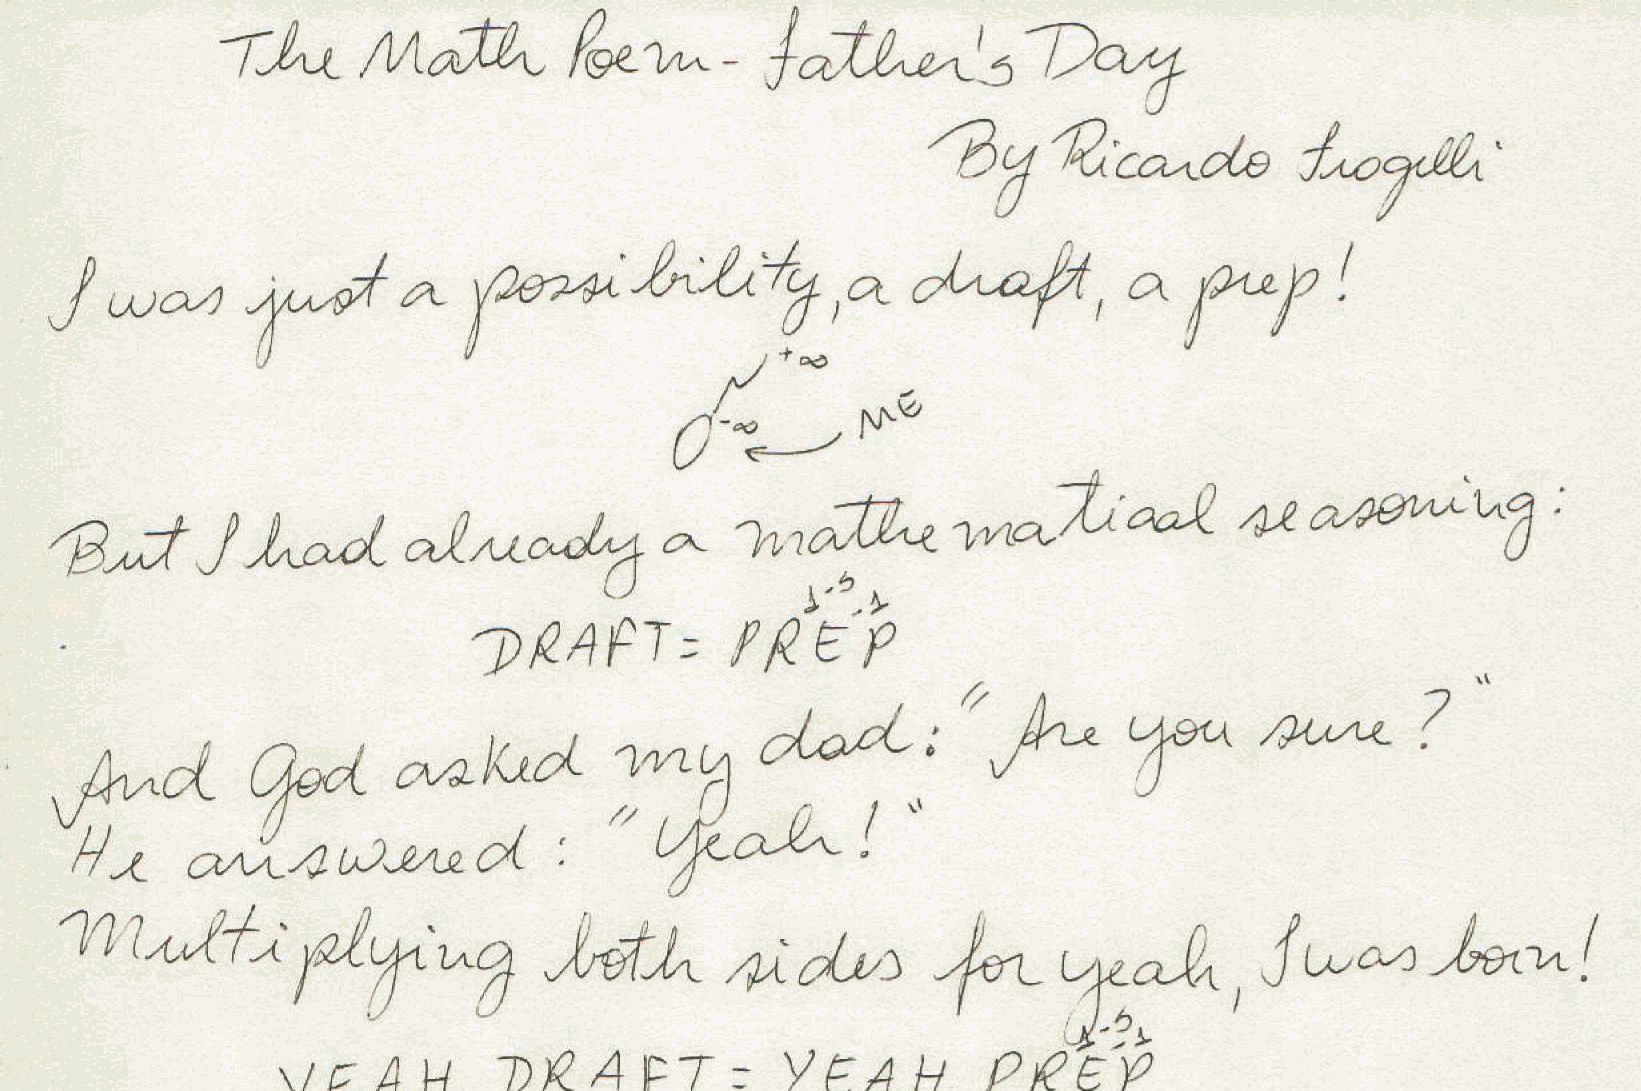 The Math Poem - Father's Day
By Ricardo Frogelli
I was just a possibility, a draft, a prep!
+∞
-∞ ME
But I had already a mathematical seasoning:
1-5 -1
DRAFT = PREP
And God asked my dad: "Are you sure?"
He answered: "Yeah!"
Multiplying both sides for yeah, I was born!
1-5 -1
YEAH DRAFT = YEAH PREP